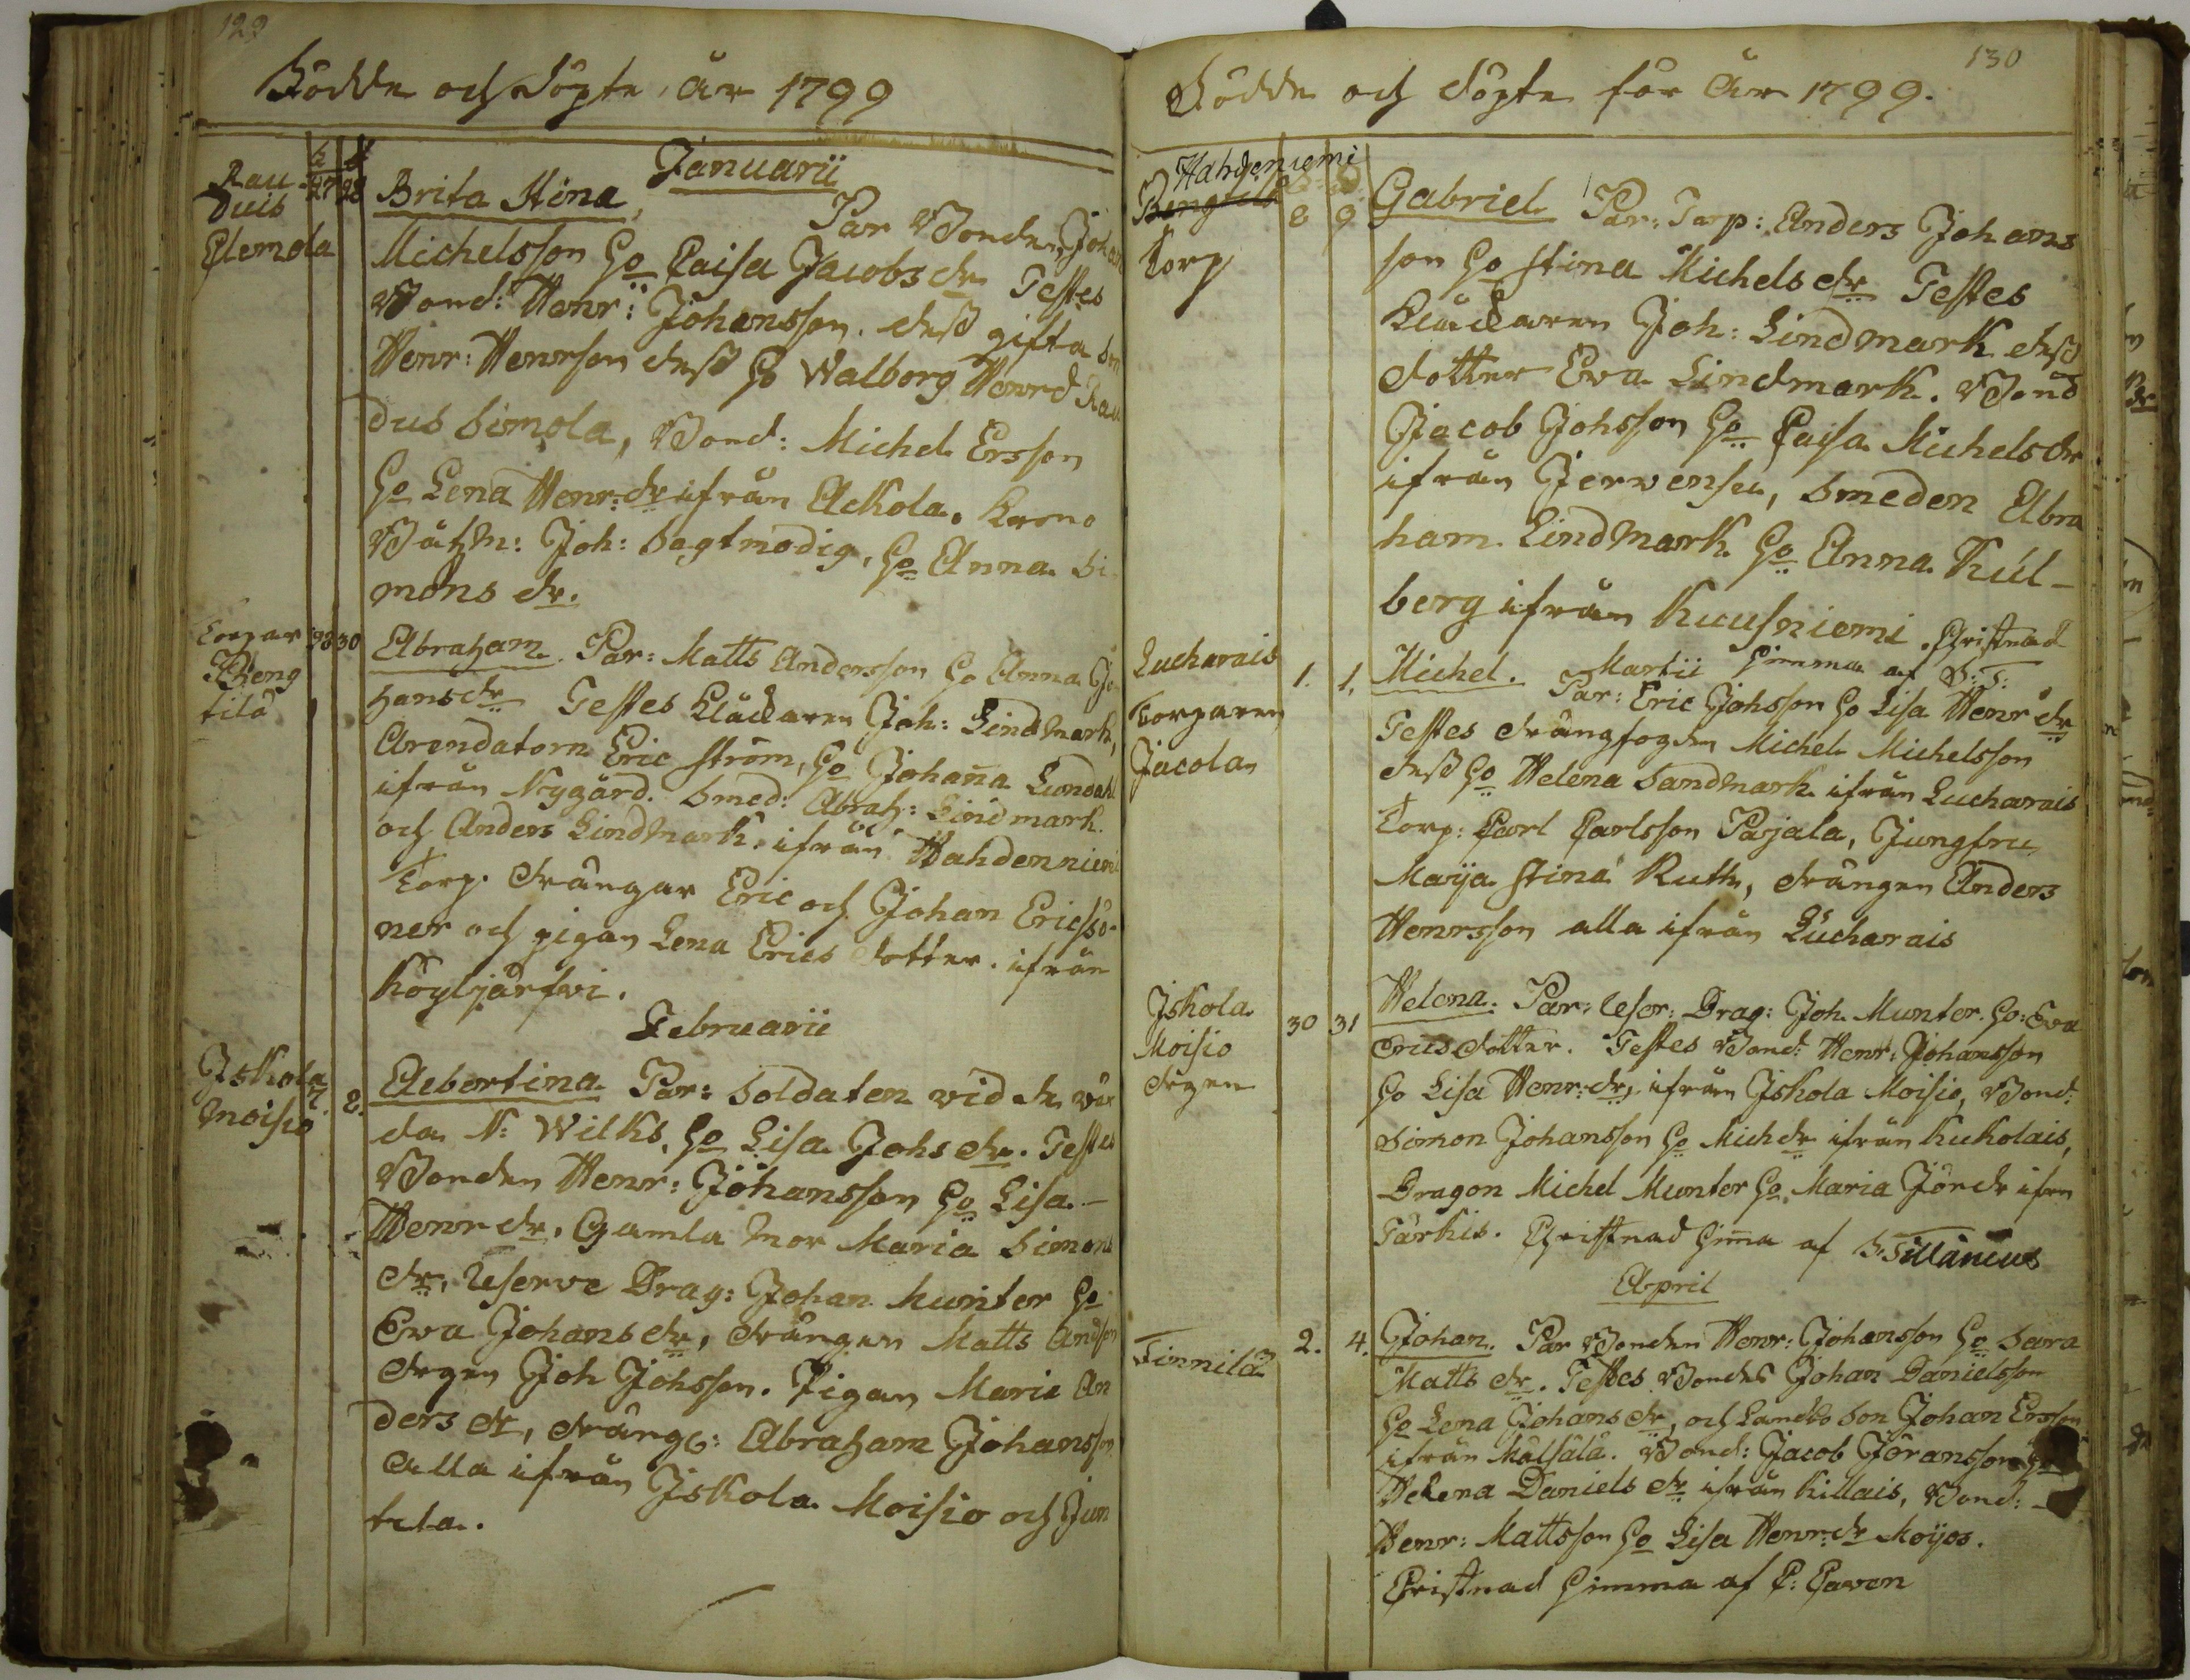 129
Födde och döpte, år 1799
Januarii
Rau- 27 28 Brita Stina, Par Bonden Johan
duis
Alemola Michelsson Ho Caisa Jacobs dr Testes
Bond: Henr: Johansson. dess gifta Son
Henr: Henrson dess Ho Walborg Henrd Rau
dus Simola, Bond: Michel Ersson
Ho Lena Henr: dr ifrån Ackola. Krono
Båtzm: Joh: Sagtmodig, Ho Anna Si
mons dr.
Torpar 98 30 Abraham. Par: Matts Andersson Ho Anna Jo
Bheng hansdr Testes Klåckaren Joh: Lindmark,
tilä Arendatorn Eric Ström, Ho Johanna Lundahl
ifrån Nygård. Smed: Abrah: Lindmark.
och Anders Lindmark. ifrån Hahdenniemi
Torp. drängar Eric och Johan Ericsso-
ner och pigan Lena Erics dotter. ifrån
Köyljärfvi.
Februarii
Iskola 7. 8. Aebertina. Par: Soldaten vid
Moisio N: Wilks, Ho Lisa Johs dr. Testes
Bonden Henr: Johansson Ho Lisa -
Henr dr, Gamla Mor Maria Simons
dr, Reserve Drag: Johan Munter Ho
Ewa Johans dr, drängen Matts Andson
drgen Joh Johsson. Pigan Maria An
ders dr, dräng: Abraham Johansson
Alla ifrån Iskola Moisio och Jun
tila.
130
Födde och döpte för År 1799.
Hahdeniemi
Torp 8 9 Gabriel Par: Torp: Anders Johans
son Ho Stina Michels dr Testes
Klåckaren Joh: Lindmark dess
dotter Eva Lindmark. Bond
Jacob Johsson Ho Caisa Michels dr
ifrån Jerwensu, Smeden Abra
ham Lindmark Ho Anna Kul-
berg ifrån Kuusniemi. Christnad
Martii himma af S: T:
Lucharais 1. 1. Michel. Par: Eric Johsson Ho Lisa Henr dr
Torparen Testes drängfogden Michel Michelsson
Jacola dess Ho Helena Sandmark ifrån Lucharais
Torp: Carl Carlsson Pajala, Jungfru
Maija Stina Ruth, drängen Anders
Henrsson alla ifrån Lucharais
Iskola 30 31 Helena. Par: Reser: Drag: Joh. Munter. Ho: Eva
Moisio Ericsdotter. Testes Bond: Henr: Johansson
drgen Ho Lisa Henr: dr, ifrån Iskola Moisio, Bond:
Simon Johansson Ho Mich dr ifrån Kukolais,
Dragon Michel Munter Ho, Maria Jör dr ifrn
Tärkis. Christnad himma af S Tillänius
April
Finnilä 2. 4. Johan. Par Bonden Henr: Johansson Ho Sara
Matts dr. Testes Bonden Johan Danielsson
Ho Lena Johans dr, och Landbo Son Johan Ersson
ifrån Mälsälä. Bond: Jacob Jöransson Ho
Helena Daniels dr ifrån Killais, Bond: -
Henr: Mattsson Ho Lisa Henr: dr Moijos.
Cristnad himma af C: Caven